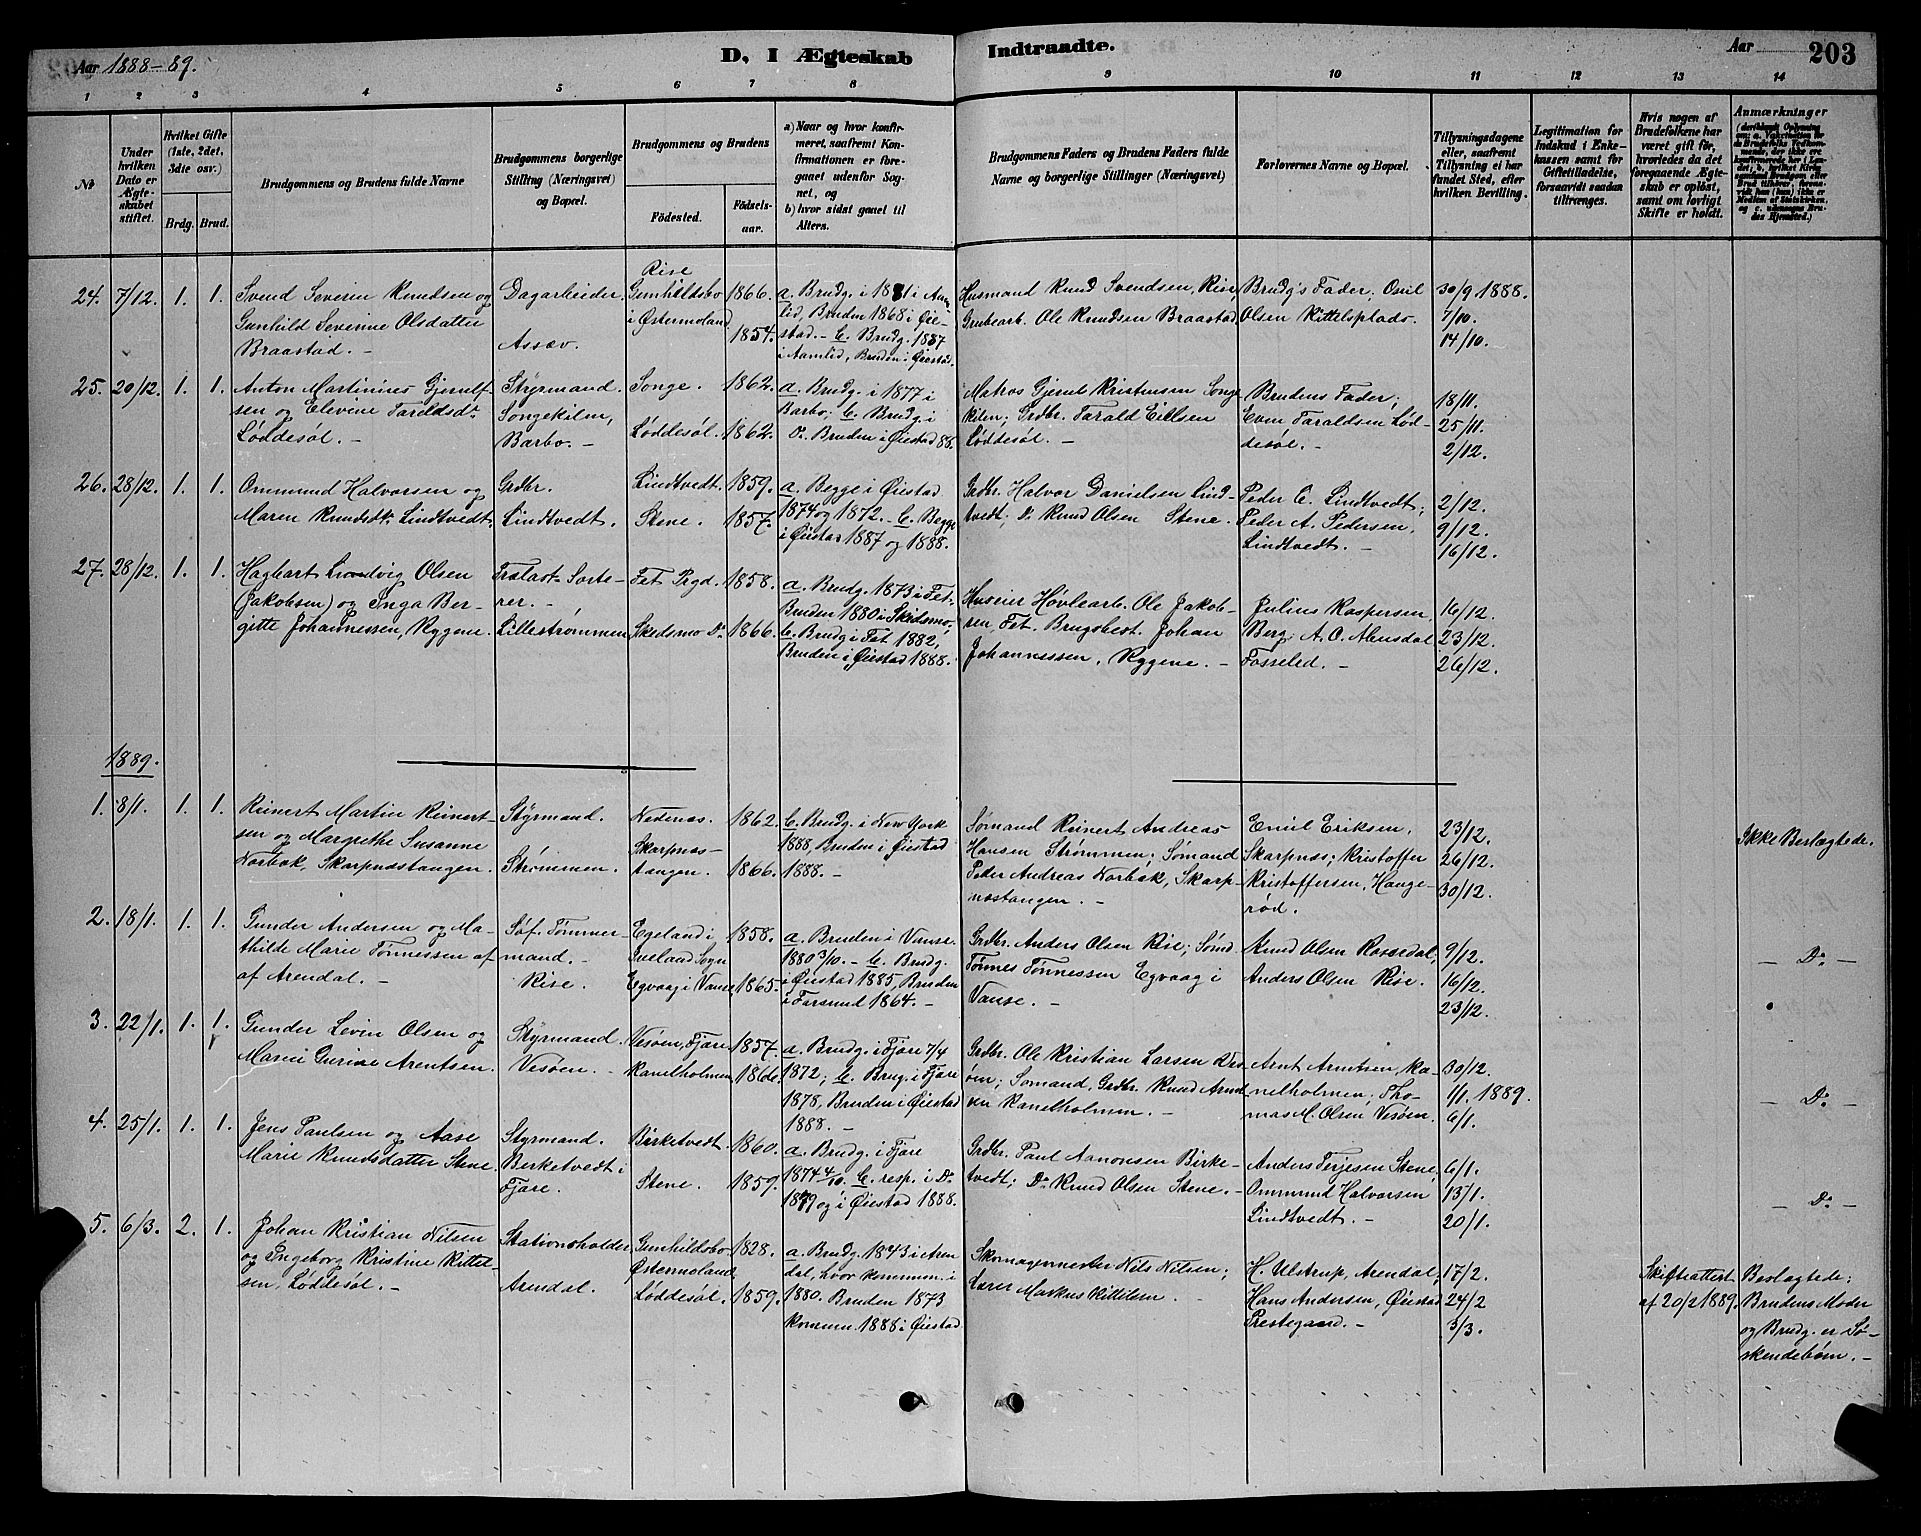 Aar 1888-89.
D, I Ægteskab
Indtraadte.
Aar
203
1 2 3 4 5 6 7 8 9 10 11 12 13 14
No
Under hvilken Dato er Ægte-skabet stiftet.
Hvilket Gifte (1ste, 2det, 3die osv.)
Brdg. Brud.
Brudgommens og Brudens fulde Navne
Brudgommens borgerlige Stilling (Næringsvei) og Bopæl.
Brudgommens og Brudens
Födested.
Födsels-aar.
a) Naar og hvor konfir-meret, saafremt Kon-firmationen er fore-gaaet udenfor Sog-net, og
b) hvor sidst gaaet til Alters.
Brudgommens Faders og Brudens Faders fulde Navne og borgerlige Stillinger (Næringsvei)
Forlovernes Navne og Bopæl.
Tillysningsdagene eller, saafremt Tillysning ei har fundet Sted, efter hvilken Bevilling.
Legitimation for Indskud i Enke-kassen samt for Giftetilladelse, forsaavidt saadan tiltrænges.
Hvis nogen af Brudefolkene har været gift för, hvorledes da det foregaaende Ægte-skab er oplöst, samt om lovligt Skifte er holdt.
Anmærkninger
24. 7/12. 1. 1. Svend Severin Knudsen og Gunhild Severine Olsdatter Braastad. -
Dagarbeider, Assæv.
Rise Gunhildsbo i Østermoland
1866. 1854.
a. Brudg. i 1881 i Aamlid, Bruden 1868 i Øiestad. - b. Brudg. 1887 i Aamlid, Bruden i Øiestad.
Husmand Knud Svendsen, Rise, Grubearb. Ole Knudsen Braastad.
Brudg's Fader; Omil Olsen Kittelsplads.
30/9 1888. 7/10. 14/10.
25. 20/12. 1. 1. Anton Martinius Gjerulfsen og Elevine Taraldsdr Løddesøl. -
Styrmand. Songekilen, Barbo. -
Songe. Løddesøl.
1862. 1862.
a. Brudg. i 1877 i Barbo; b. Brudg. i Do. Bruden i Øiestad 88.
Matros Gjerul Kristensen Songekilen; Grdbr. Tarald Eillsen Løddesøl. -
Brudens Fader; Even Taraldsen Løddesøl. -
18/11. 25/11. 2/12.
26. 28/12. 1. 1. Ommund Halvorsen og Maren Knudsdr. Lindtvedt.
Grdbr. Lindtvedt.
Lindtvedt. Stene.
1859. 1857.
a. Begge i Øiestad 1874 og 1872. - b. Begge i Øiestad 1887 og 1888.
Grdbr. Halvor Danielsen Lindtvedt; Do Knud Olsen Stene.
Peder C. Lindtvedt; Peder A. Pedersen, Lindtvedt. -
2/12. 9/12. 16/12.
27. 28/12. 1. 1. Hagbart Ludvig Olsen (Jakobsen) og Inga Bergitte Johannessen, Rygene.
Trælast-Sorterer. - Lillestrømmen
Fet Prgd. Skedsmo Do
1858. 1866.
a. Brudg. 1873 i Fet. Bruden 1880 i Skedsmo; b. Brudg i Fet 1882, Bruden i Øiestad 1888.
Huseier Høvlearb. Ole Jakobsen, Fet. Brugsbest. Johan Johannessen, Rygene. -
Julius Kaspersen, Berg; A. O. Alensdal Fosseled. -
16/12. 23/12. 26/12.
1889.
1. 8/1. 1. 1. Reinert Martin Reinertsen og Margrethe Susanne Norbak, Skarpnæstangen.
Styrmand. Strømmen.
Nedenæs. Skarpnæstangen.
1862. 1866.
b. Brudg. i New York 1888, Bruden i Øiestad 1888. -
Sømand Reinert Andreas Hansen Strømmen; Sømand Peder Andreas Norbak, Skarpnæstangen. -
Emil Eriksen, Skarpnæs; Kristoffer Kristoffersen, Haugerød.
23/12. 26/12. 30/12.
Ikke Beslægtede.
2. 18/1. 1. 1. Gunder Andersen og Mathilde Marie Tønnessen af af Arendal. -
Søf. Tømmermand. - Rise.
Egeland i Iveland Sogn Egvaag i Vanse
1858. 1865.
a. Bruden i Vanse 1880 3/10. - b. Brudg. i Øiestad 1885, Bruden i Farsund 1864. -
Grdbr. Anders Olsen Rise; Sømd Tønnes Tønnessen Egvaag i Vanse. -
Knud Olsen Rossedal, Anders Olsen Rise.
9/12. 16/12. 23/12.
- Do. -
3. 22/1. 1. 1. Gunder Levin Olsen og Maren Gurine Arentsen.
Styrmand. Vesøen. -
Vesøen, Fjære. Kanelholmen
1857. 1866.
a. Brudg. i Fjære 7/4 1872; b. Brug. i Fjære 1878, Bruden i Øiestad 1888. -
Grdbr. Ole Kristian Larsen Vesøen; Sømand, Grdbr. Knud Arentsen Kanelholmen. -
Arnt Arntsen, Kanelholmen; Thomas M. Olsen Vesøen.
30/12. 1/1. 1889. 6/1.
- Do -
4. 25/1. 1. 1. Jens Paulsen og Aase Marie Knudsdatter Stene
Styrmand. Berketvedt i Fjære.
Birketvedt. Stene.
1860. 1859.
a. Brudg. i Fjære 1874 4/10. b. resp. i Do 1879 og i Øiestad 1888.
Grdbr. Paul Aanonsen Birketvedt; Do Knud Olsen Stene. -
Anders Terjesen Stene, Ommund Halvorsen Lindtvedt. -
6/1. 13/1. 20/1.
- Do. -
5. 6/3. 2. 1. Johan Kristian Nilsen og Ingeborg Kristine Kittelsen, Løddesøl. -
Stationsholder, Arendal.
Gunhildsbo Østermoland, Løddesøl.
1828. 1859.
a. Brudg. 1843 i Arendal, hvor kommun. i 1880. Bruden 1873 kommun. 1888 i Øiestad.
Skomagermester Nils Nilsen; Lærer Markus Kittilsen. -
H. Ulstrup, Arendal; Hans Andersen, Øiestad Prestegaard. -
17/2. 24/2 3/3.
Skifteattest af 20/2 1889.
Beslægtede; Brudens Moder og Brudg. er Søskendebørn. -